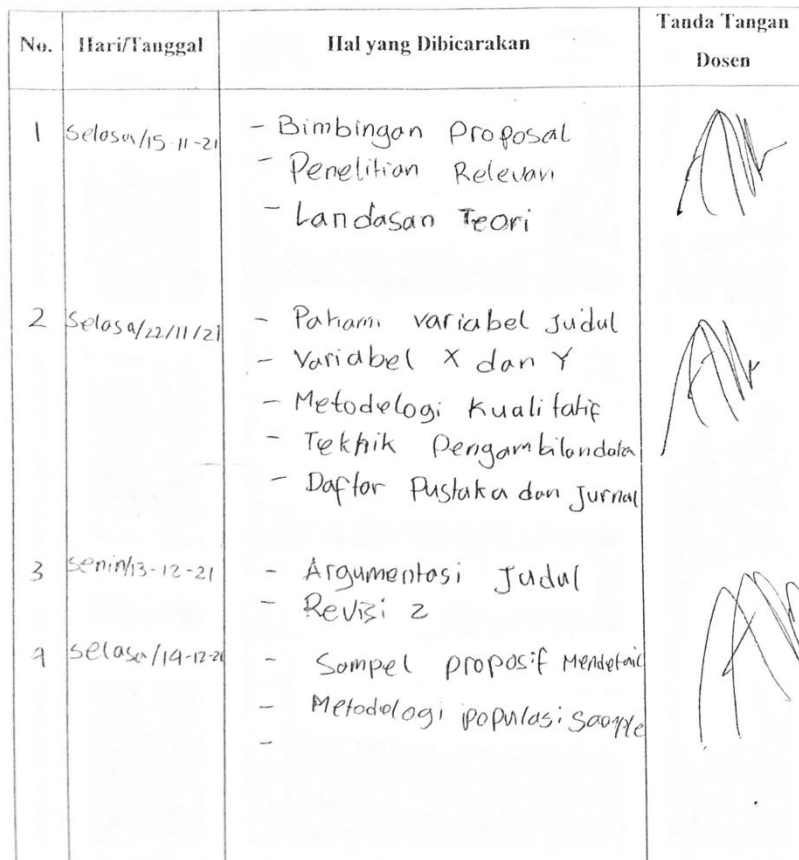 No. Hari/Tanggal Hal yang Dibicarakan Tanda Tangan
Dosen
1 Selasa/15-11-21 - Bimbingan Proposal
- Penelitian Relevan
- Landasan Teori
2 Selasa/22/11/21 - Pahami variabel Judul
- Variabel X dan Y
- Metodelogi Kualitatif
- Tekhik Pengambilandata
- Daftar Pustaka dan Jurnal
3 Senin/13-12-21 - Argumentasi Judul
- Revisi 2
4 Selasa/14-12-21 - Sampel proposif Mendetail
- Metodologi populasi Sample
-